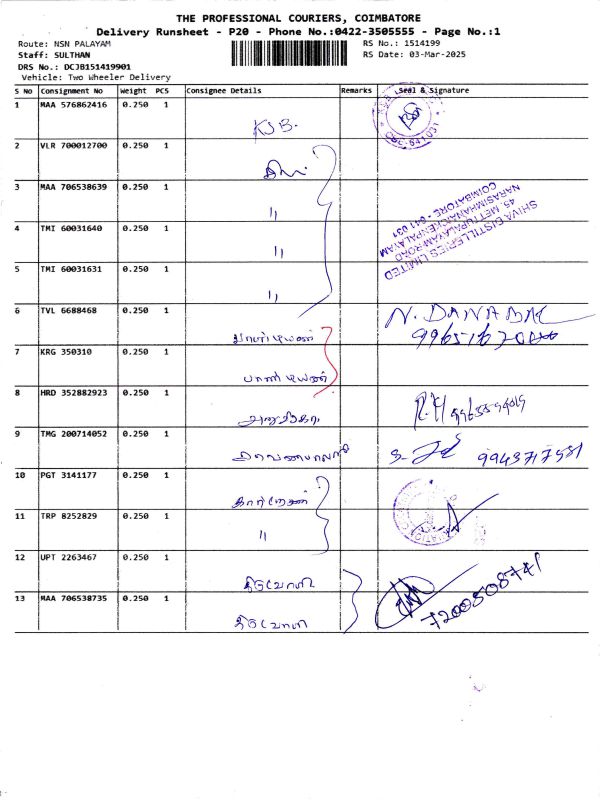 THE PROFESSIONAL COURIERS, COIMBATORE
Delivery Runsheet - P20 - Phone No.:0422-3505555 - Page No.:1
Route: NSN PALAYAM RS No.: 1514199
Staff: SULTHAN RS Date: 03-Mar-2025
DRS No.: DCJB151419901
Vehicle: Two Wheeler Delivery
S No Consignment No Weight PCS Consignee Details Remarks Seal & Signature
1 MAA 576862416 0.250 1
KSB.
CBE-641 031
2 VLR 700012700 0.250 1
3 MAA 706538639 0.250 1
"
SHIVA DISTILLERIES LIMITED
45, METTUPALAYAM ROAD
NARASIMHANAICKENPALAYAM
COIMBATORE - 641 031
4 TMI 60031640 0.250 1
"
5 TMI 60031631 0.250 1
"
6 TVL 6688468 0.250 1
பாண்டியன்
N. DANABAL
7 KRG 350310 0.250 1
பாண்டியன்
8 HRD 352882923 0.250 1
9 TMG 200714052 0.250 1
9943717581
10 PGT 3141177 0.250 1
கார்த்திகேயன்
11 TRP 8252829 0.250 1
"
12 UPT 2263467 0.250 1
13 MAA 706538735 0.250 1
7200508741